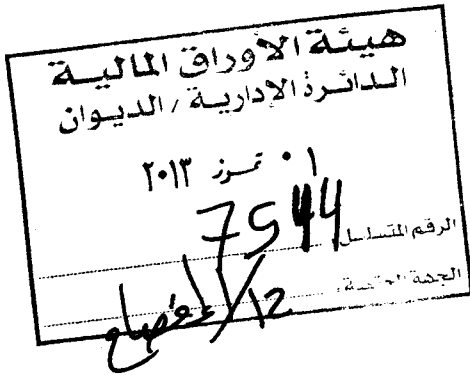 هيئة الأوراق المالية
الدائرة الإدارية / الديوان
٠١ تموز ٢٠١٣
الرقم المتسلسل 7544
الجهة المختصة ١٢/الإفصاح